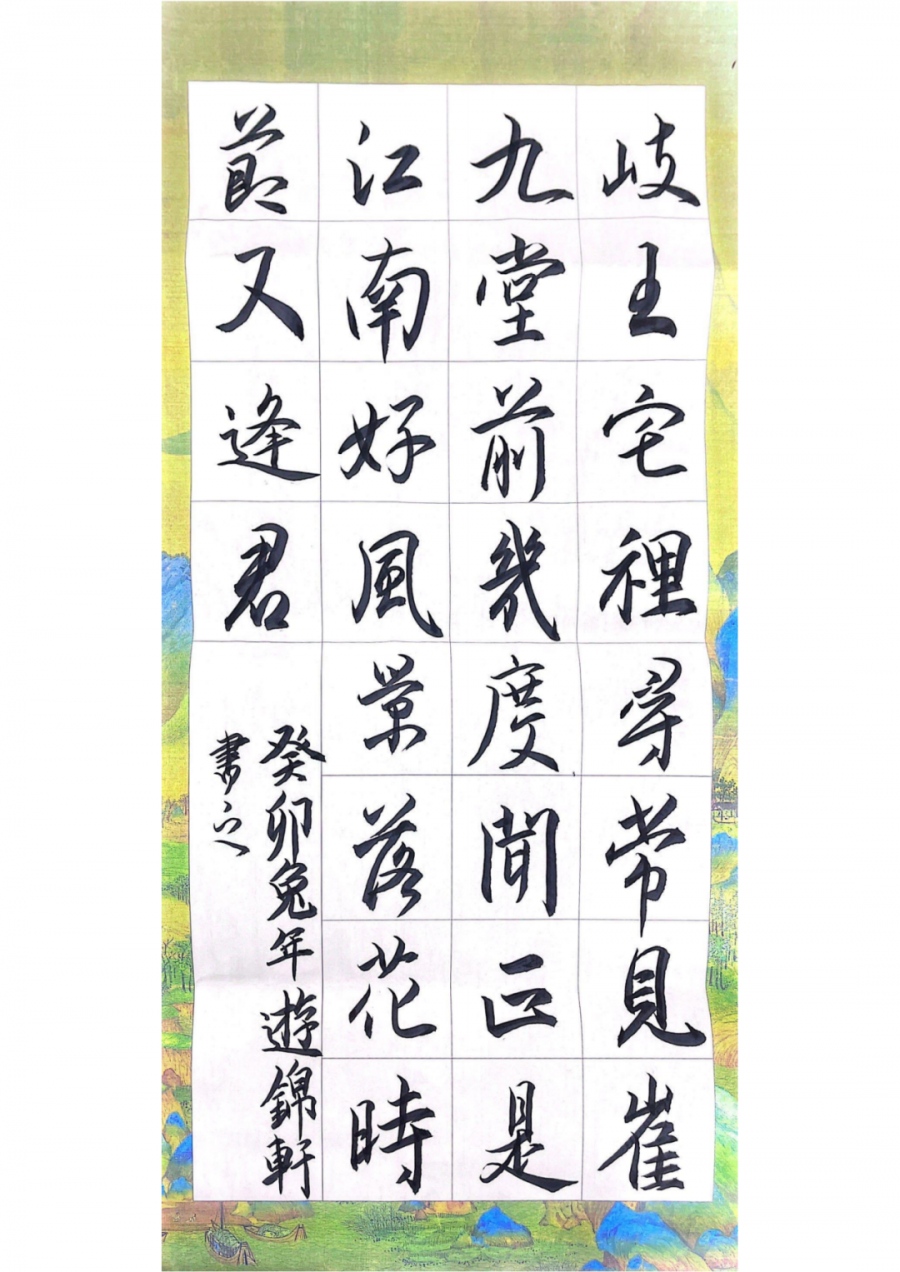 岐王宅裡尋常見崔
九堂前幾度聞正是
江南好風景落花時
節又逢君
癸卯兔年遊錦軒
書之